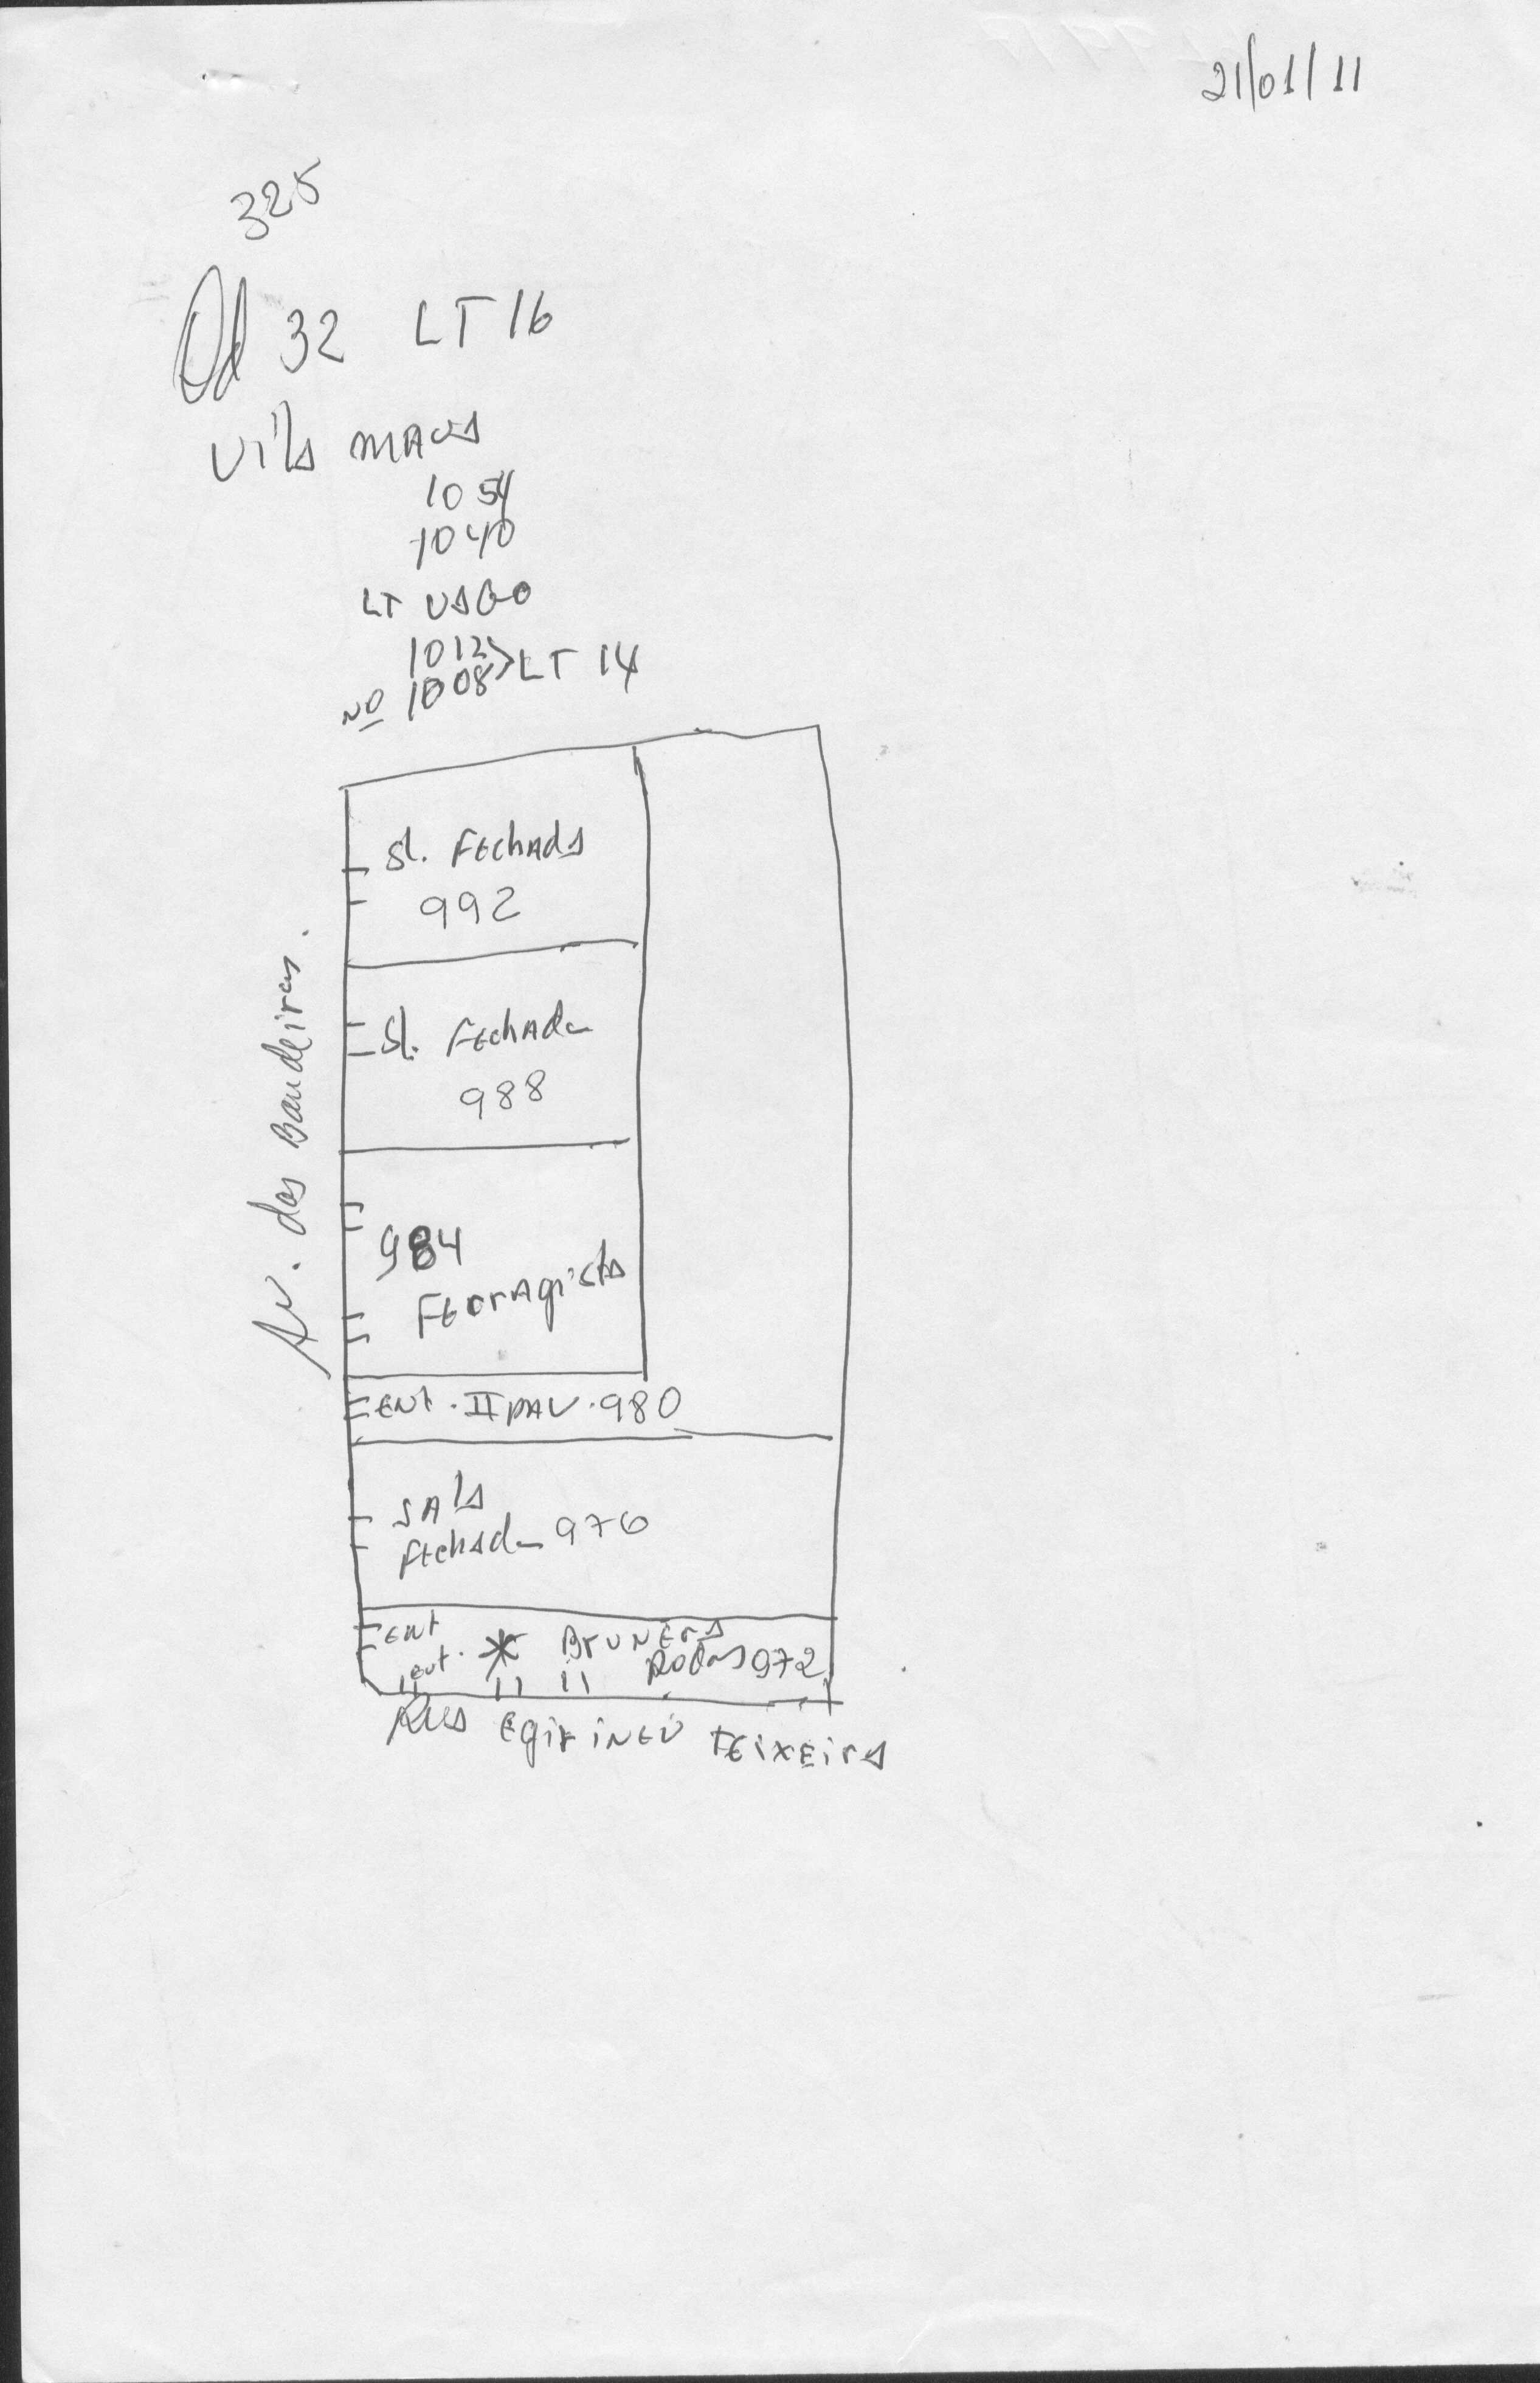 21/01/11
325
Qd 32 LT 16
Vila
1054
1040
LT VAGO
1012
Nº 1008 > LT 14
Sl. FEchada
992
Sl. FEchada
988
984
FErragista
ENt. II PAV. 980
Av. das Bandeiras.
SAla
fEchada 976
ENt
ent. * BrUNEra
Rodas 972
RUA EgirinEU TEixEira